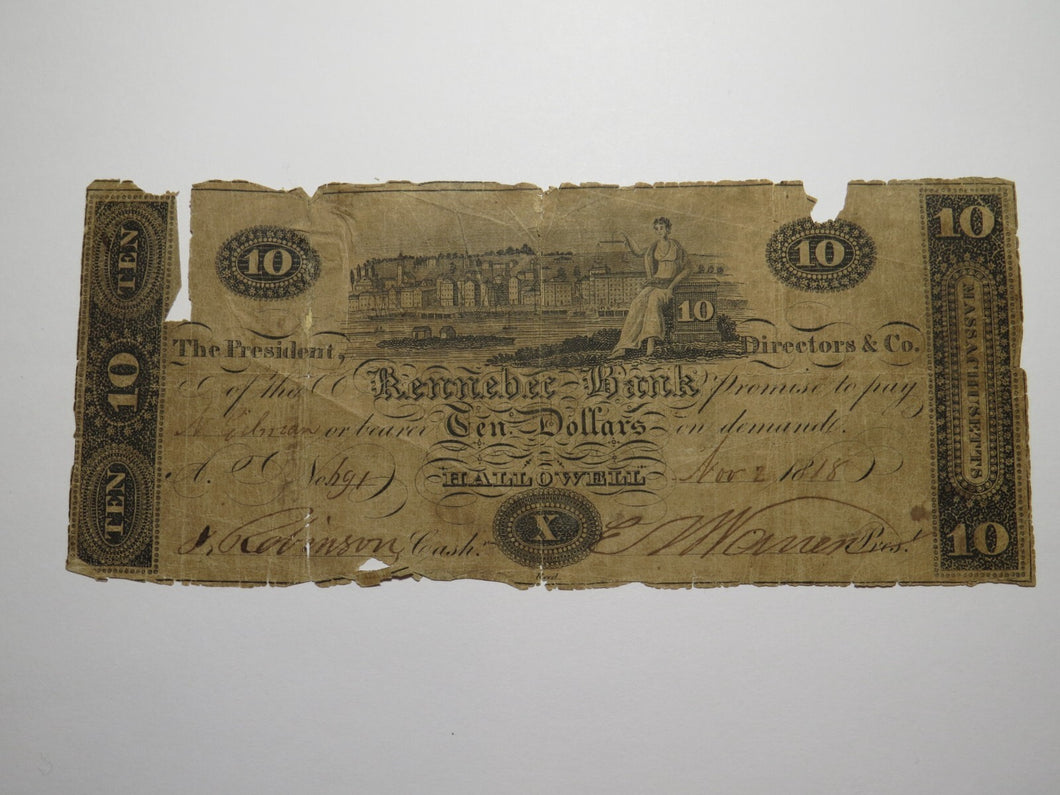 TEN
10
TEN
10
10
10
10
MASSACHUSETTS
10
The President, Directors & Co.
of the Kennebec Bank promise to pay
N. Gilman or bearer Ten Dollars on demand.
A. No 691 HALLOWELL Nov 2 1818
X
J. Robinson Cash. E. T. Warren Pres.t